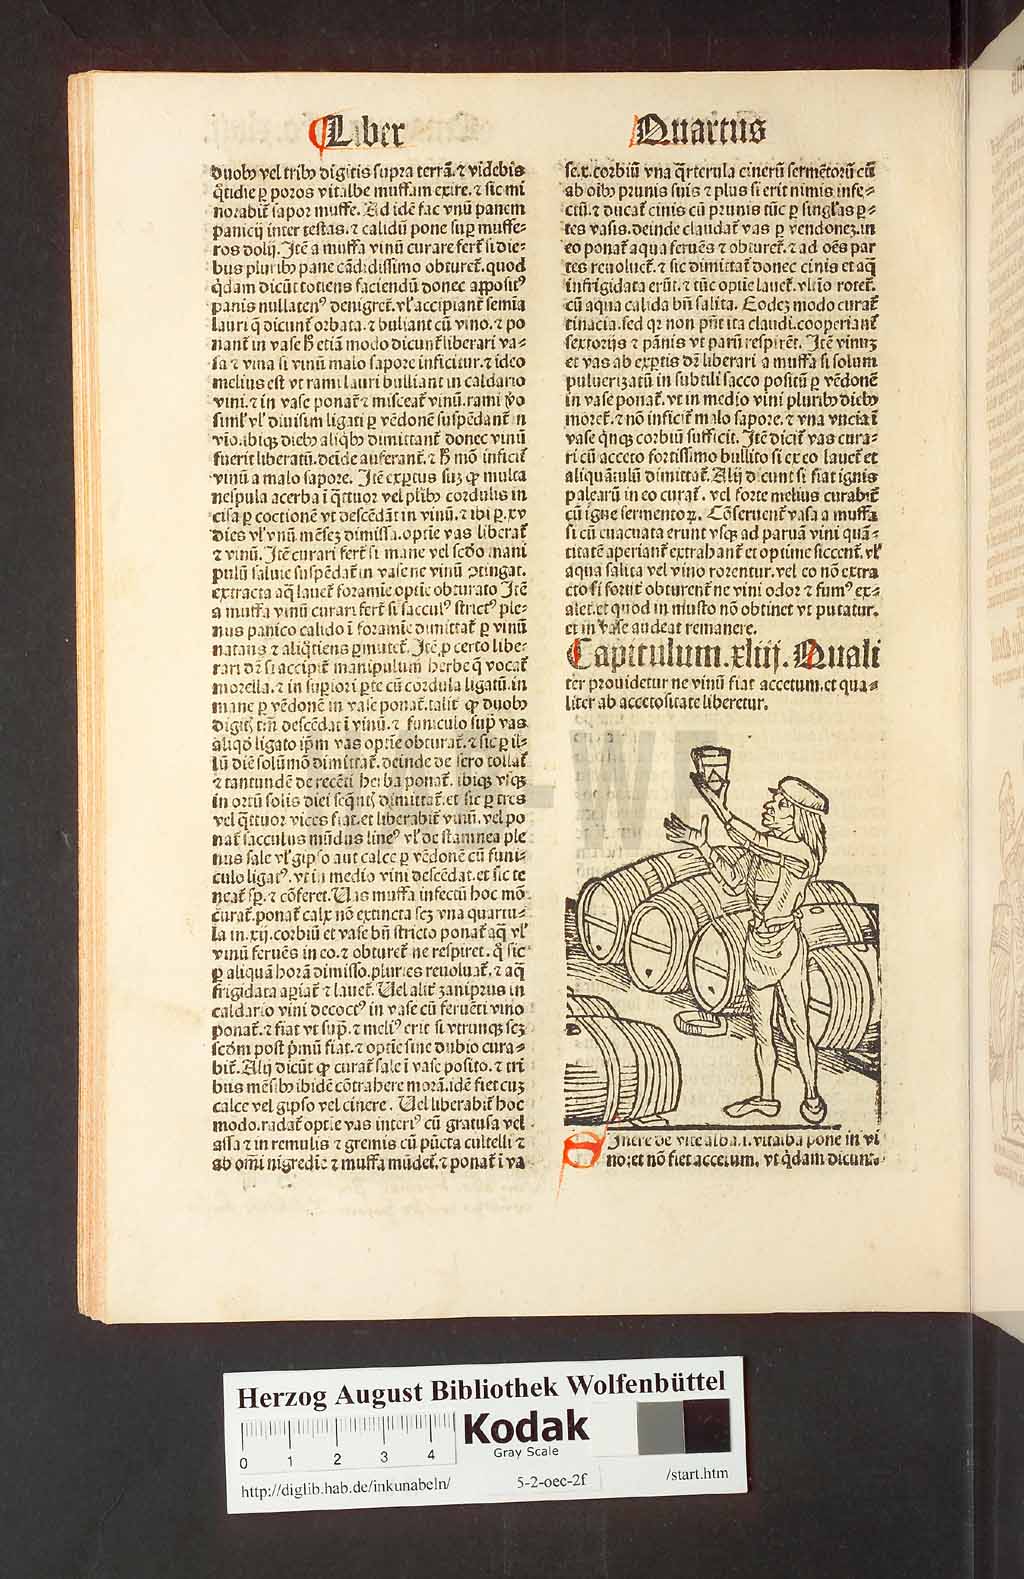 Liber
Quartus
duobꝫ vel tribꝫ digitis supra terrã. ⁊ videbis
q̃tidie ꝑ poros vitalbe muffam exire. ⁊ sic mi
norabit̃ sapor muffe. Ad idẽ fac vnũ panem
panicij inter testas. ⁊ calidũ pone suꝑ muffe⸗
ros dolij. Itẽ a muffa vinũ curare fert̃ si die⸗
bus pluribꝫ pane cãdidissimo obturet̃. quod
q̃dam dicũt totiens faciendũ donec appositꝰ
panis nullatenꝰ denigret̃. vl̃ accipiant̃ semĩa
lauri q̃ dicunt̃ orbata. ⁊ buliant cũ vino. ⁊ po
nant̃ in vase h̃ etiã modo dicunt̃ liberari va⸗
sa ⁊ vina si vinũ malo sapore inficitur. ⁊ ideo
melius est vt rami lauri bulliant in caldario
vini. ⁊ in vase ponat̃ ⁊ misceat̃ vinũ. rami ṽo
siml̃ vl̃ diuisim ligati ꝑ vẽdonẽ suspẽdant̃ in
vĩo. ibiqꝫ diebꝫ aliqbꝫ dimittant̃ donec vinũ
fuerit liberatũ. deĩde auferant̃. ⁊ h̃ mõ inficit̃
vinũ a malo sapore. Itẽ exꝑtus suꝫ ꝙ multa
nespula acerba ĩ q̃ttuor vel pl̃ibꝫ cordulis in
cisa ꝑ coctionẽ vt descẽdãt in vinũ. ⁊ ibi ꝑ. xv
dies vl̃ vnũ mẽseꝫ dimissa. optie vas liberat̃
⁊ vinũ. Itẽ curari fert̃ si mane vel sero mani
pulũ saluie suspẽdat̃ in vase ne vinũ ꝯtingat.
extracta aq̃ lauet̃ foramie optie obturato Itẽ
a muffa vinũ curari fert̃ si sacculꝰ strictꝰ ple⸗
nus panico calido ĩ foramĩe dimittat̃ ꝑ vinũ
natans ⁊ aliq̃tiens ꝑmutet̃. Itẽ ꝓ certo libe⸗
rari dr̃ si accipit̃ manipulum herbe q̃ vocat̃
morella. ⁊ in suꝑiori ꝑte cũ cordula ligatũ. in
mane ꝑ vẽdonẽ in vase ponat̃. talit̃ ꝙ duobꝫ
digitꝭ tm̃ descẽdat ĩ vinũ. ⁊ funiculo supͣ vas
aliqͦ ligato ip̃m vas optĩe obturat̃. ⁊ sic ꝑ il⸗
lũ diẽ solũmõ dimittat̃. deinde de sero tollat̃
⁊ tantundẽ de recẽti herba ponat̃. ibiqꝫ vsqꝫ
in ortũ solis diei seq̃ntꝭ dimittat̃. et sic ꝑ tres
vel q̃ttuor vices fiat. et liberabit̃ vinũ. vel po
nat̃ sacculus mũdus lineꝰ vl̃ de stamnea ple
nus sale vl̃ gipso aut calce ꝑ vẽdonẽ cũ funi⸗
culo ligatꝰ. vt in medio vini descẽdat. et sic te
neat̃ sp̃. ⁊ cõferet. Uas muffa infectũ hoc mõ
curat̃. ponat̃ calx nõ extincta seꝫ vna quartu⸗
la in. xij. corbiũ et vase bñ stricto ponat̃ aq̃ vl̃
vinũ feruẽs in eo. ⁊ obturet̃ ne respiret. q̃ sic
ꝑ aliquã horã dimisso. pluries reuoluat̃. ⁊ aq̃
frigidata aꝑiat̃ ⁊ lauet̃. Uel alit̃ zaniprus in
caldario vini decoctꝰ in vase cũ feruẽti vino
ponat̃. ⁊ fiat vt supͣ. ⁊ meliꝰ erit si vtrunqꝫ seꝫ
secõm post pͥmũ fiat. ⁊ optĩe sine dubio cura⸗
bit̃. Alij dicũt ꝙ curat̃ sale ĩ vase posito. ⁊ tri
bus mẽsibꝫ ibidẽ cõtrahere morã. idẽ fiet cuꝫ
calce vel gipso vel cinere. Uel liberabit̃ hoc
modo. radat̃ optie vas interiꝰ cũ gratusa vel
assa ⁊ in remulis ⁊ gremis cũ pũcta cultelli ⁊
ab om̃i nigredĩe ⁊ muffa mũdet̃. ⁊ ponat̃ ĩ va
se. x. corbiũ vna q̃rterula cinerũ sermẽtorũ cũ
ab oĩbꝫ prunis suis ⁊ plus si erit nimis infe⸗
ctũ. ⁊ ducat̃ cinis cũ prunis tũc ꝑ singl̃as ꝑ⸗
tes vasis. deinde claudat̃ vas ꝑ vendoneꝫ. in
eo ponat̃ aqua feruẽs ⁊ obturet̃. ⁊ ad oẽs par
tes reuoluet̃. ⁊ sic dimittat̃ donec cinis et aq̃
infrigidata erũt. ⁊ tũc optĩe lauet̃. vltĩo rotet̃.
cũ aqua calida bñ salita. Eodeꝫ modo curat̃
tinacia. sed qꝫ non pñt ita claudi. cooperiant̃
sextorijs ⁊ pãnis vt parũ respirẽt. Itẽ vinuꝫ
et vas ab exꝑtis dr̃ liberari a muffa si solum
puluerizatũ in subtili sacco positũ ꝑ vẽdonẽ
in vase ponat̃. vt in medio vini pluribꝫ diebꝫ
moret̃. ⁊ nõ inficit̃ malo sapore. ⁊ vna vncia ĩ
vase q̃nqꝫ corbiũ sufficit. Itẽ dicit̃ vas cura⸗
ri cũ acceto fortissimo bullito si ex eo lauet̃ et
aliquãtulũ dimittat̃. Alij dicunt si fiat ignis
palearũ in eo curat̃. vel forte melius curabit̃
cũ igne sermentoꝝ. Cõseruent̃ vasa a muffa
si cũ euacuata erunt vsqꝫ ad paruã vini quã⸗
titatẽ aperiant̃ extrahant̃ et optime siccent̃. vl̃
aqua salita vel vino rorentur. vel eo nõ extra
cto si fortit̃ obturent̃ ne vini odor ⁊ fumꝰ ex⸗
alet. et quod in musto nõ obtinet vt putatur.
et in vase audeat remanere.
Capitulum. xliij. Quali
ter prouidetur ne vinũ fiat accetum. et qua⸗
liter ab accetositate liberetur.
Cinere de vite alba. i. vitalba pone in vi
no: et nõ fiet accetum, vt q̃dam dicunt.
Herzog August Bibliothek Wolfenbüttel
Kodak
Gray Scale
0 1 2 3 4
http://diglib.hab.de/inkunabeln/ 5-2-oec-2f /start.htm